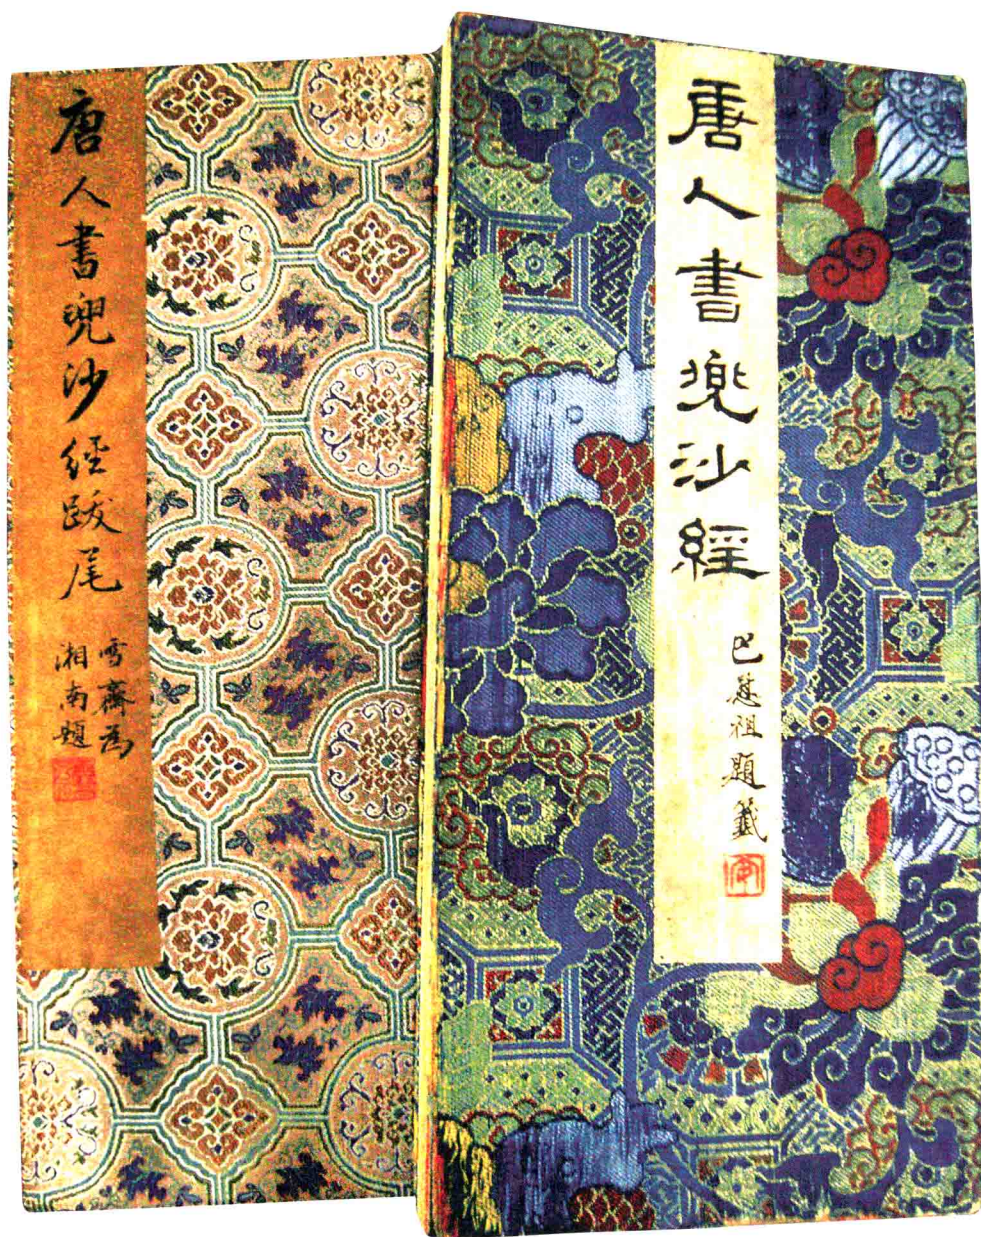 唐人書兜沙經
巴慰祖題籤
唐人書兜沙經跋尾
雪齋為
湘南題